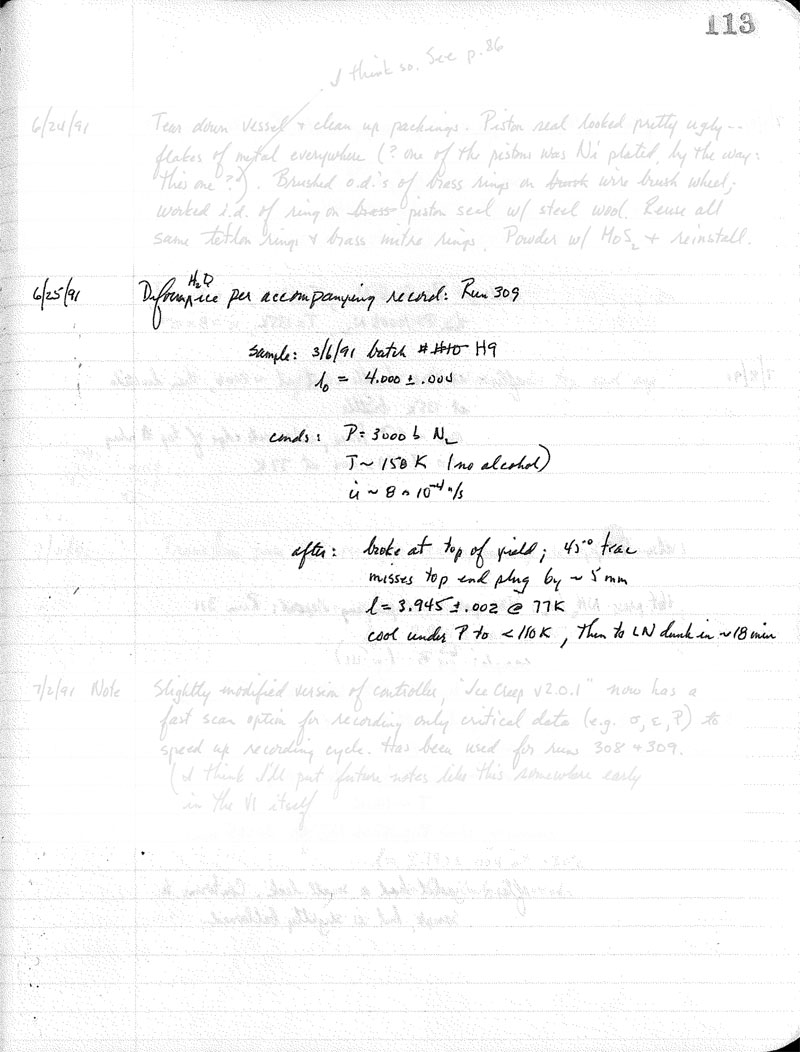 113
I think so. See p. 86
6/24/91 Tear down vessel & clean up packings. Piston seal looked pretty ugly --
flakes of metal everywhere (? one of the pistons was Ni plated, by the way:
this one ?). Brushed o.d.'s of brass rings on brush wire brush wheel;
worked i.d. of ring on brass piston seal w/ steel wool. Reuse all
same teflon rings & brass mitre rings. Powder w/ MoS2 & reinstall.
6/25/91 Deform H2O ice per accompanying record: Run 309
sample: 3/6/91 batch # #10 H9
l0 = 4.000 ± .004
conds: P = 3000 b N2
T ~ 158 K (no alcohol)
u̇ ~ 8 × 10-4 "/s
after: broke at top of yield; 45° frac
misses top end plug by ~ 5 mm
l = 3.945 ± .002 @ 77K
cool under P to < 110K, then to LN dunk in ~ 18 min
7/2/91 Note Slightly modified version of controller, "Ice Creep v2.0.1" now has a
fast scan option for recording only critical data (e.g. σ, ε, P) to
speed up recording cycle. Has been used for runs 308 & 309.
(I think I'll put future notes like this somewhere early
in the VI itself